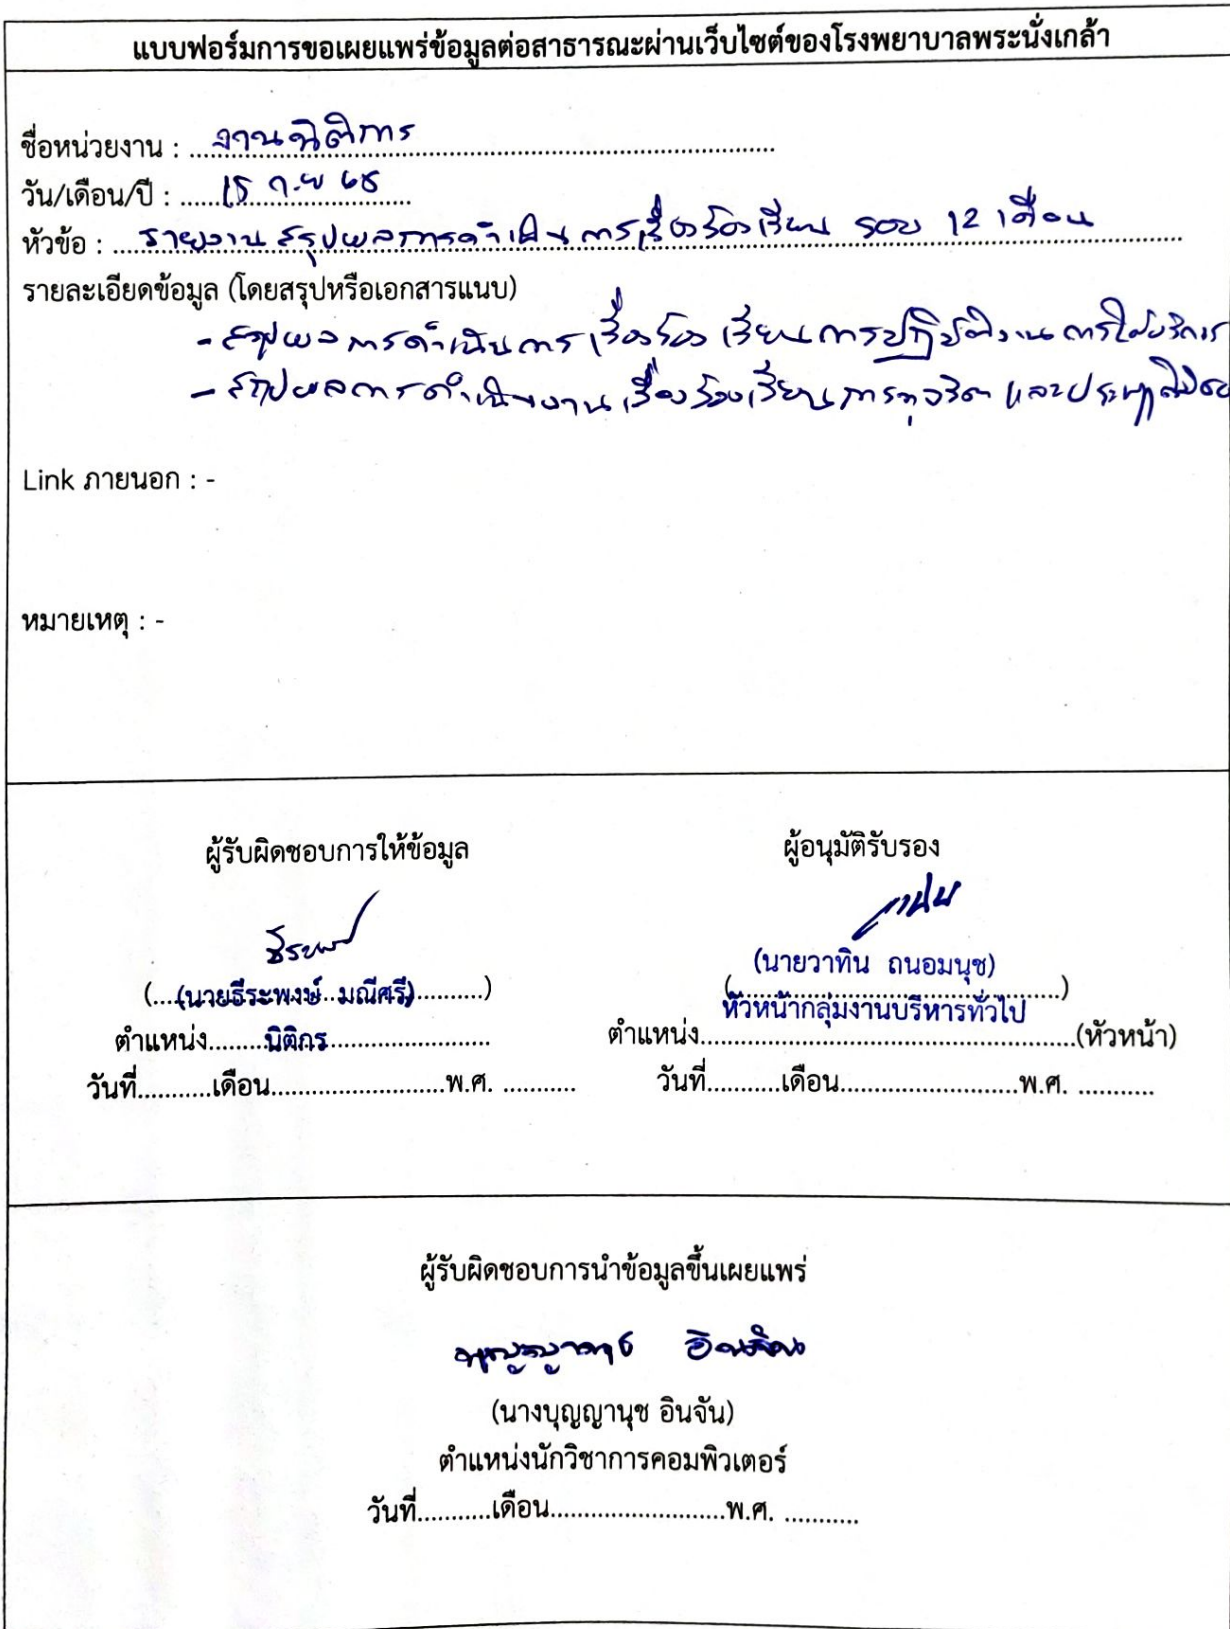 แบบฟอร์มการขอเผยแพร่ข้อมูลต่อสาธารณะผ่านเว็บไซต์ของโรงพยาบาลพระนั่งเกล้า
ชื่อหน่วยงาน : งานนิติการ
วัน/เดือน/ปี : 15 ก.ย 68
หัวข้อ : รายงานสรุปผลการดำเนินการเรื่องร้องเรียน รอบ 12 เดือน
รายละเอียดข้อมูล (โดยสรุปหรือเอกสารแนบ)
- สรุปผลการดำเนินการเรื่องร้องเรียนการปฏิบัติงาน การให้บริการ
- สรุปผลการดำเนินงานเรื่องร้องเรียนการทุจริต และประพฤติมิชอบ
Link ภายนอก : -
หมายเหตุ : -
ผู้รับผิดชอบการให้ข้อมูล ผู้อนุมัติรับรอง
ธีระพงษ์
(....(นายธีระพงษ์ มณีศรี)..........) (นายวาทิน ถนอมนุช)
(..........)
ตำแหน่ง.........นิติกร......................... ตำแหน่ง หัวหน้ากลุ่มงานบริหารทั่วไป (หัวหน้า)
วันที่...........เดือน..........................พ.ศ. ........... วันที่...........เดือน..........................พ.ศ. ...........
ผู้รับผิดชอบการนำข้อมูลขึ้นเผยแพร่
บุญญานุช อินจัน
(นางบุญญานุช อินจัน)
ตำแหน่งนักวิชาการคอมพิวเตอร์
วันที่...........เดือน..........................พ.ศ. ...........